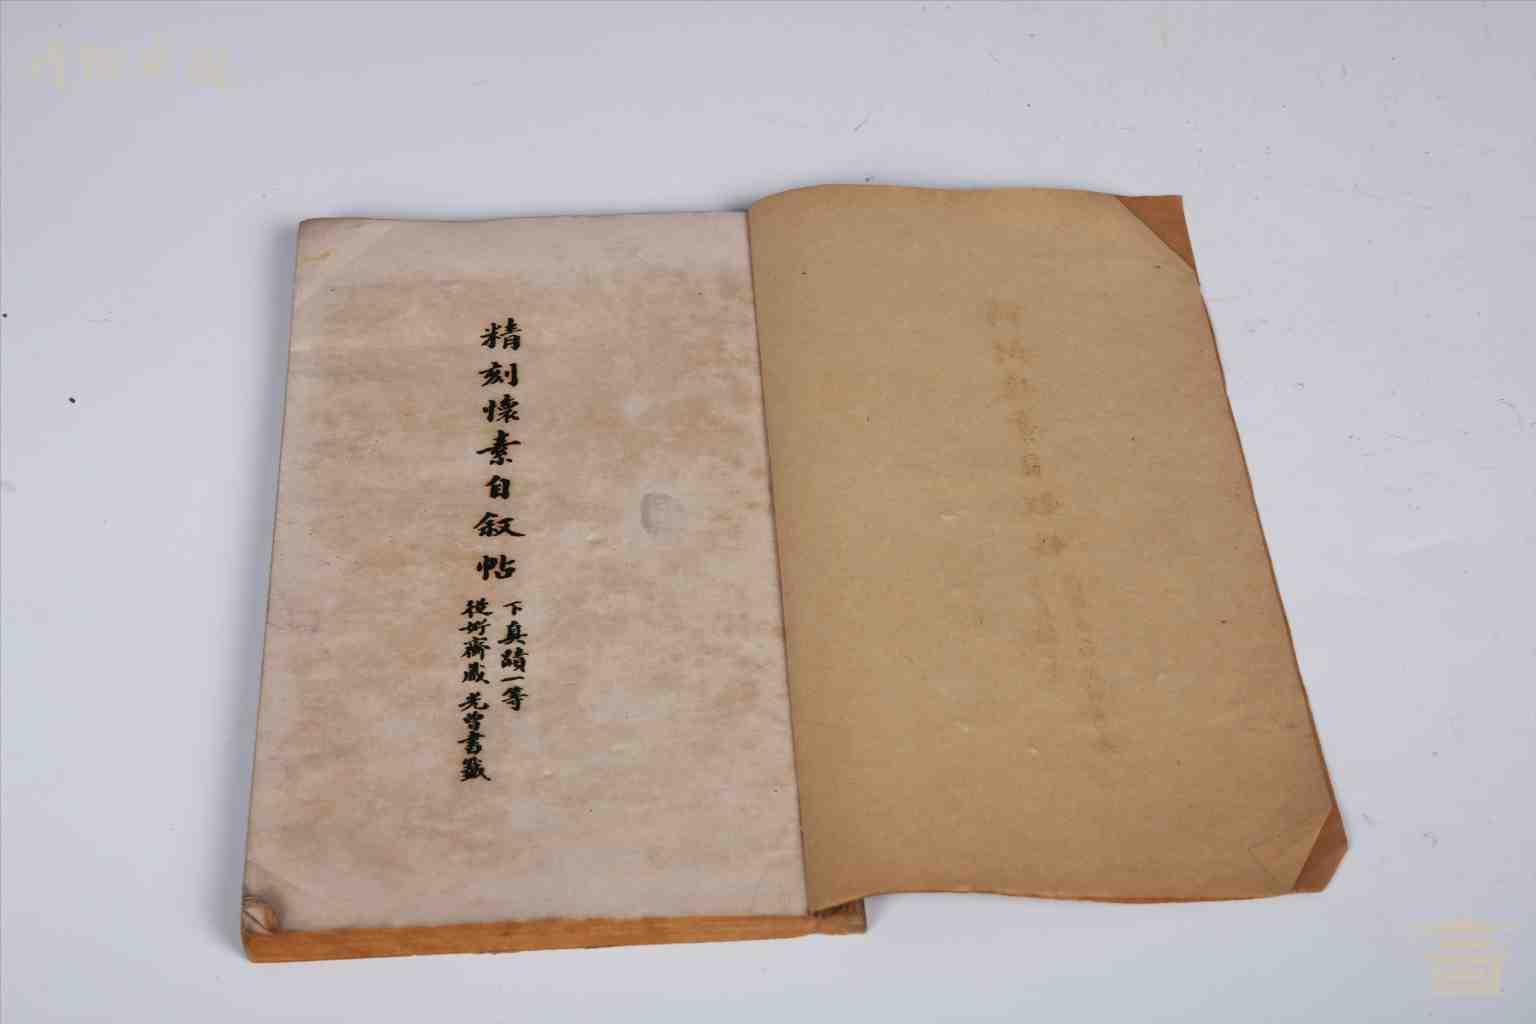 精刻懷素自叙帖
下真蹟一等
從好齋藏 光曾書籤